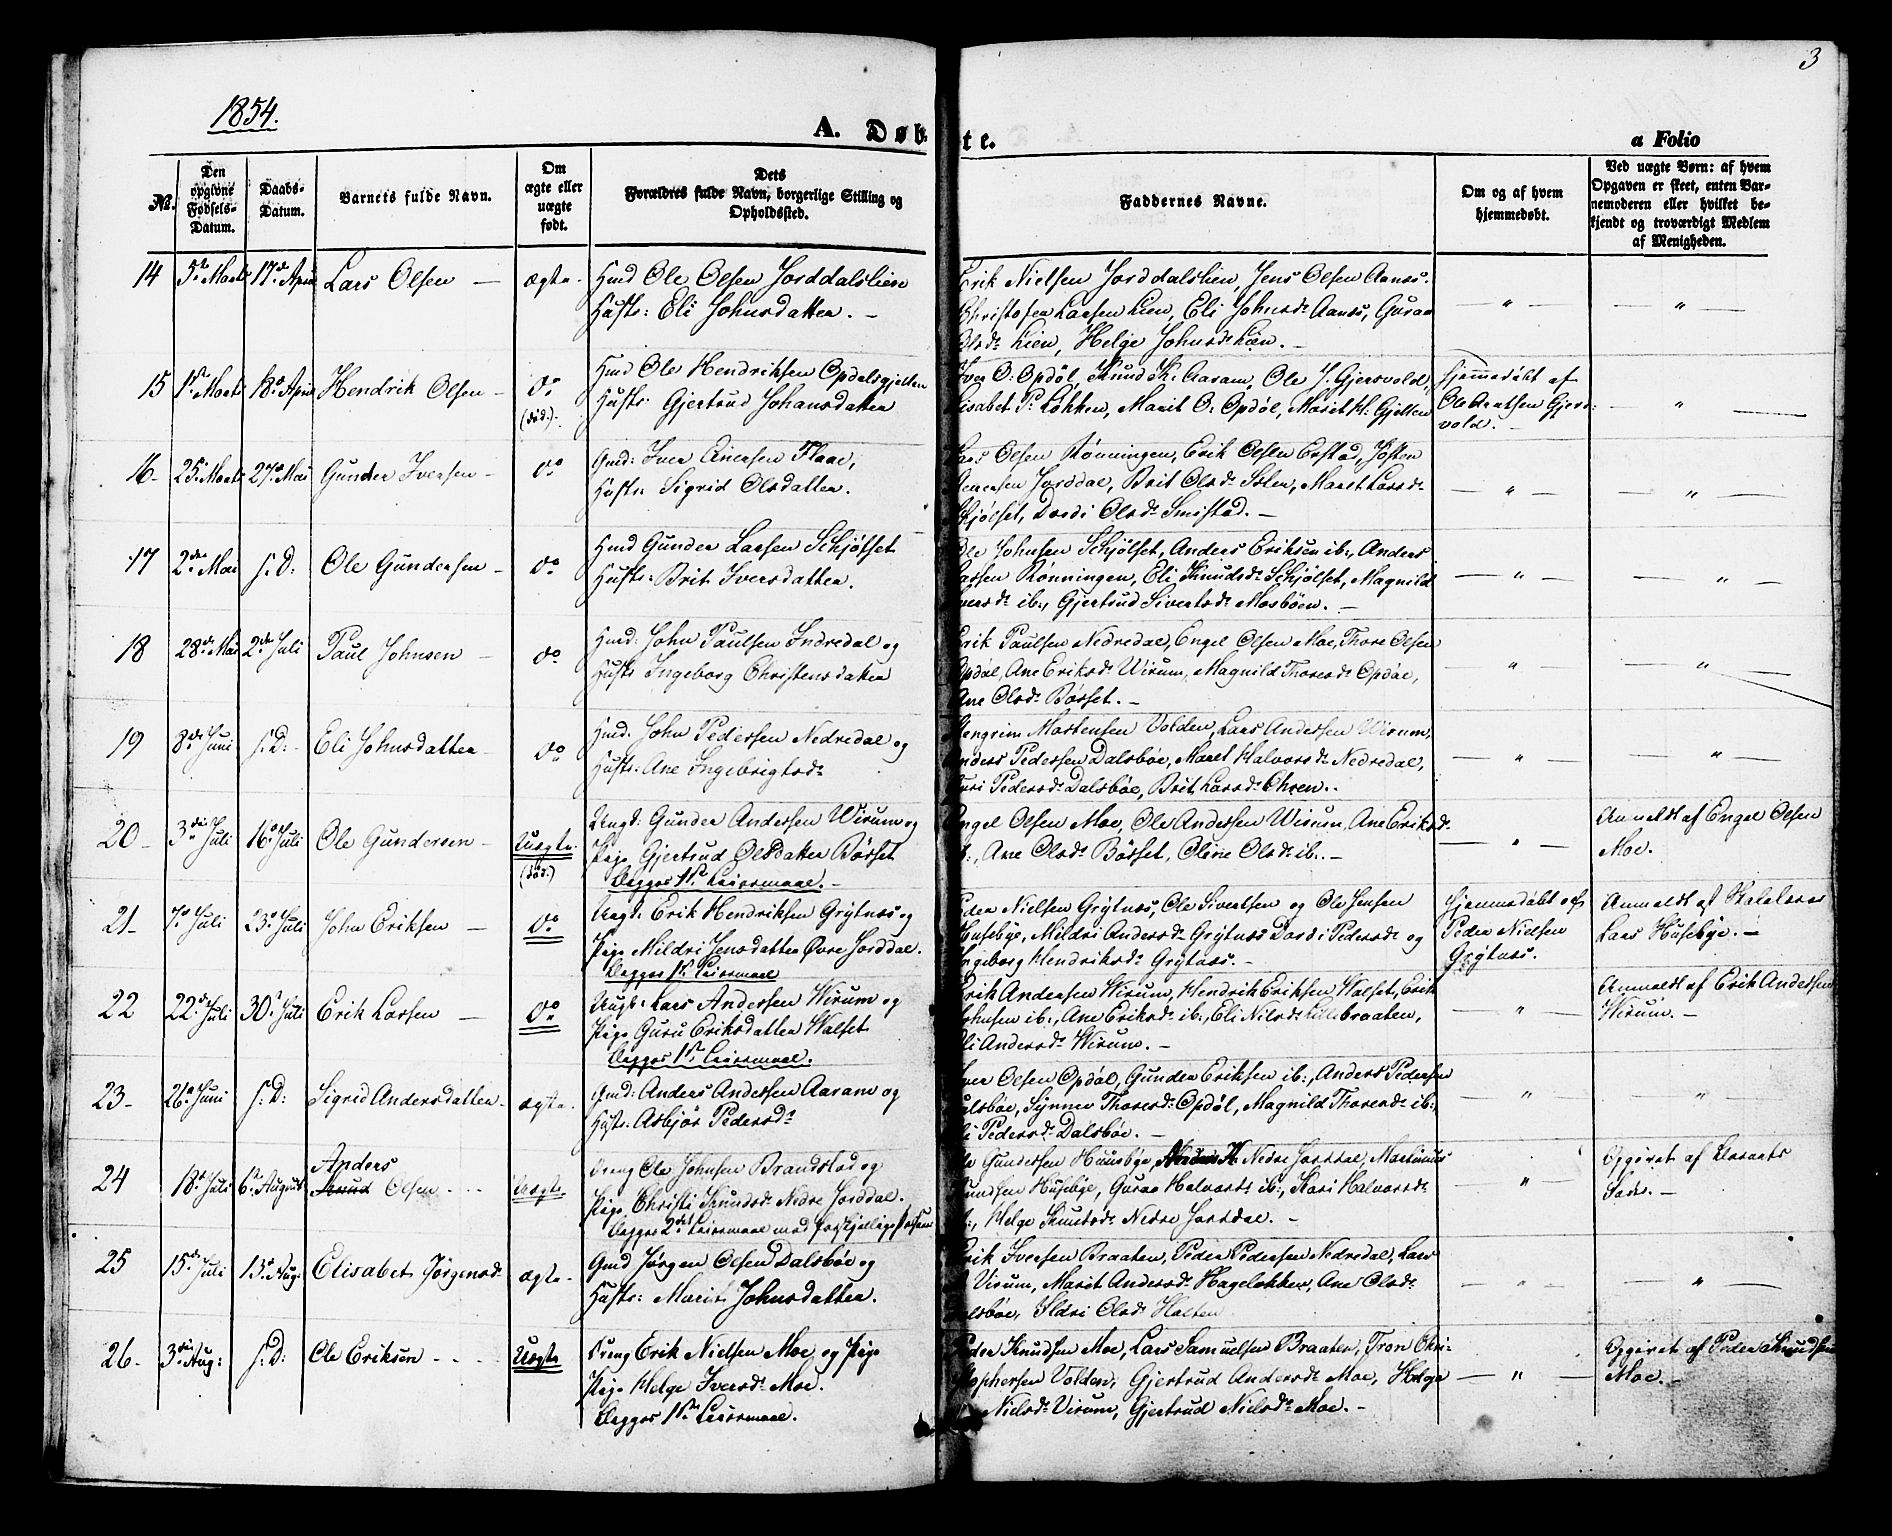 3
1854.
A. Døbte.
a Folio
No.
Den opgivne Fødsels-Datum.
Daabs-Datum.
Barnets fulde Navn.
Om ægte eller uægte født.
Dets Forældres fulde Navn, borgerlige Stilling og Opholdssted.
Faddernes Navne.
Om og af hvem hjemmedøbt.
Ved uægte Børn: af hvem Opgaven er skeet, enten Barnemoderen eller hvilket bekjendt og troværdigt Medlem af Menigheden.
14 5te Marts 17de April Lars Olsen — ægte. Gmd Ole Olsen Jorddalslien Erik Nielsen Jorddalslien, Jens Olsen Aanes.
Hustr: Eli Johnsdatter. — Christofer Larsen Lien, Eli Johnsd. Aanes, Guran — " — — " —
Olsd. Lien, Helge Johnsd. Lien. —
15 1ste Marts 18de April Hendrik Olsen — do (død). Gmd Ole Hendriksen Opdalsgjelten Iver O. Opdøl, Knud K. Aaram, Ole J. Gjersvold, Hjemmedöbt af
Hustr: Gjertrud Johansdatter Lisabet P. Løkken, Marit O. Opdøl, Maret H. Gjelten Ole Arntsen Gjers- — " —
vold. —
16 25de Marts 27de Mai Gunder Iversen — do Gmd: Iver Einersen Flaae, Lars Olsen Rønningen, Erik Olsen Erstad, Jøsten
Hustr: Sigrid Olsdatter. Jorddal, Brit Olsd. Solem, Maret Larsd. — " — — " —
Schjølset, Dordi Olsd. Smistad. —
17 2den Mai S. D: Ole Gundersen — do Gmd Gunder Larsen Schjølset Ole Johnsen Schjølset, Anders Eriksen ib:, Anders
Hustr: Brit Iversdatter. Larsen Rønningen, Eli Knudsd. Schjølset, Magnild — " — — " —
Iversd. ib:, Gjertrud Sivertsd. Mosbøen. —
18 28de Mai 2den Juli Paul Johnsen — do Gmd: John Paulsen Indredal og Erik Paulsen Nedredal, Engel Olsen Moe, Thore Olsen
Hustr: Ingeborg Christensdatter Opdøl, Ane Eriksd. Wirum, Magnild Thoresd. Opdøl, — " — — " —
Ane Olsd. Børset. —
19 8de Juni S. D: Eli Johnsdatter — do Gmd: John Pedersen Nedredal og Mortensen Volden, Lars Andersen Wirum,
Hustr: Ane Ingebrigtsd. Anders Pedersen Dalsbøe, Maret Halvorsd. Nedredal, — " — — " —
Guri Pedersd. Dalsbøe, Brit Larsd. Ohren.
20 3die Juli 16de Juli Ole Gundersen — Uægte. (død.) Ungk: Gunder Andersen Wirum og Engel Olsen Moe, Ole Andersen Wirum, Ane Eriksd. — " — Anmeldt af Engel Olsen
Pige Gjertrud Olsdatter Børset ib:, Ane Olsd. Børset, Oline Olsd. ib:. — Moe.
Begges 1ste Leiermaal. —
21 7de Juli 23de Juli John Eriksen — do Ungk: Erik Hendriksen Grytnes og Peder Nielsen Grytnes, Ole Sivertsen og Ole Jensen Hjemmedöbt af Anmeldt af Skolelærer
Pige Mildri Jensdatter Øvre Jorddal. Husebye, Mildri Andersd. Grytnes Dordi Pedersd. og Peder Nielsen Lars Husebye. —
Begges 1ste Leiermaal Ingeborg Hendriksd. Grytnes. — Grytnes.
22 22de Juli 30te Juli Erik Larsen — do Ungk: Lars Andersen Wirum og Erik Andersen Wirum, Hendrik Eriksen Walset, Erik Anmeldt af Erik Andersen
Pige Guru Eriksdatter Walset Johnsen ib:, Ane Eriksd. ib:, Eli Nilsd. Lillebraaten, — " — Wirum. —
Begges 1ste Leiermaal. Eli Andersd. Wirum. —
23 26de Juni S. D: Sigrid Andersdatter. ægte. Gmd: Anders Andersen Aaram og Iver Olsen Opdøl, Gunder Eriksen ib:, Anders Pedersen
Hustr: Asbjør Pedersd. Dalsbøe, Synnev Thoresd. Opdøl, Magnild Thoresd. ib:, — " — — " —
Eli Pedersd. Dalsbøe. —
24 18de Juli 6te August Anders
Knud Olsen — Uægte. Dreng Ole Johnsen Brandstad og Ole Gundersen Huusbye, Nedre Jorddal, Martinus Opgivet af Barnets
Pige Christi Knudsd. Nedre Jorddal. Knudsen Husebye, Guran Halvorsd. ib:, Kari Halvorsd. — " — Fader. —
Begges 2det Leiermaal med forskjellige Personer ib:, Helge Knudsd. Nedre Jorddal. —
25 15de Juli 13de Aug. Elisabet Jørgensd. ægte — Gmd Jørgen Olsen Dalsbøe og Erik Iversen Braaten, Peder Pedersen Nedredal, Lars
Hustr: Marit Johnsdatter. Virum, Marit Andersd. Hageløkken, Ane Olsd. — " — — " —
Dalsbøe, Ildri Olsd. Halten
26 3die Aug: S. D: Ole Eriksen — Uægte Dreng Erik Nielsen Moe og Pige Peder Knudsen Moe, Lars Samuelsen Braaten, Tron Chri- Opgivet af Peder Knudsen
Pige Helge Iversd. Moe. stophersen Volden, Gjertrud Andersd. Moe, Helga — " — Moe. —
Begges 1ste Leiermaal. Nielsd. Virum, Gjertrud Nielsd. Moe. —